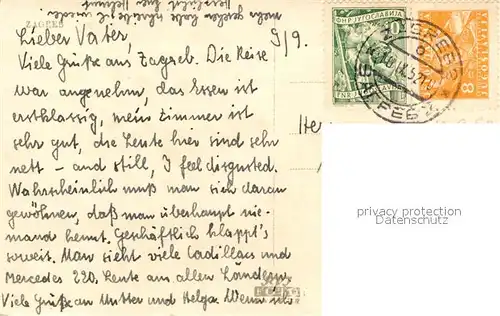 ZAGREB
9/9.
Lieber Vater,
Viele Grüße aus Zagreb. Die Reise
war angenehm, das Essen ist
erstklassig, mein Zimmer ist
sehr gut, die Leute hier sind sehr
nett - and still, I feel disgusted.
Wahrscheinlich muß man sich daran
gewöhnen, daß man überhaupt nie-
mand kennt. Geschäftlich klappt's
soweit. Man sieht viele Cadillacs und
Mercedes 220. Leute aus allen Ländern.
Viele Grüße an Mutter und Helga. Wenn ich
ФНР ЈУГОСЛАВИЈА
20
FNR JUGOSLAVIJA
ZAGREB 2
8
JUGOSLAVIJA
privacy protection
Datenschutz